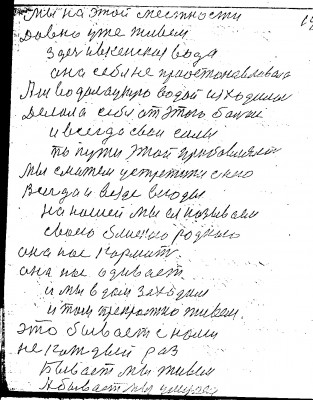 мы на этой местности
давно уже живем
здесь ивкенская вода
она себя не приостанавливала
водой находили
Делала себя от этого больше
и всегда свои силы
по пути этой прибавляла
мы сможем устретить с него
Всегда и везде вгоды
на нашей мы ея называем
своего близкого родного
она нас кормит
она нас одивает
и мы в дом заходим
и там прекрастно живем.
это бывает с нами
не каждый раз
Бывает мы живем
Абывает мы